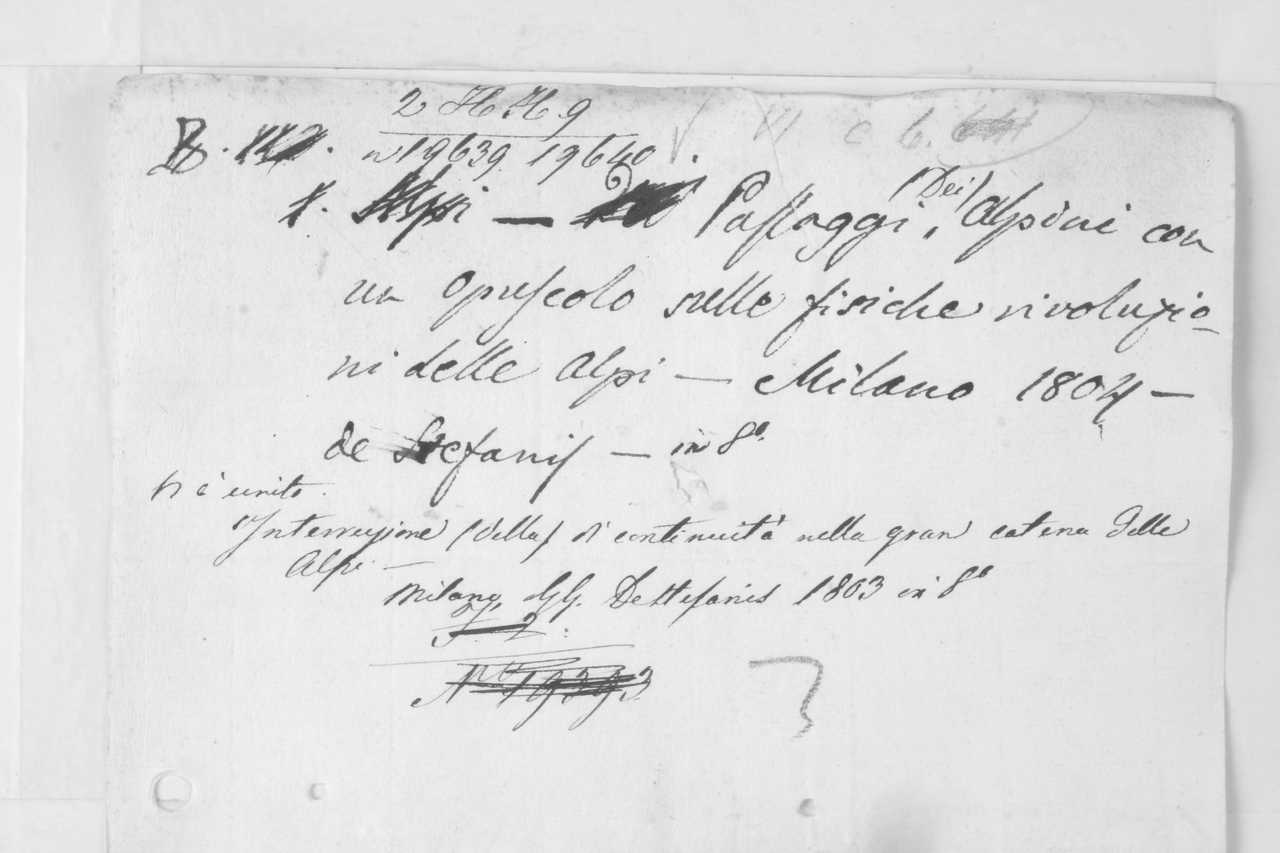 2 H H 9
n 19639. 19640.
Alpi — Passaggi, (Dei) Alpini con
un opuscolo sulle fisiche rivoluzio-
ni delle Alpi — Milano 1804 —
de Stefanis — in 8°.
Vi è unito.
Interruzione (della) di continuità nella gran catena delle
Alpi —
Milano, GG. Destefanis 1803 in 8°
N° 19393